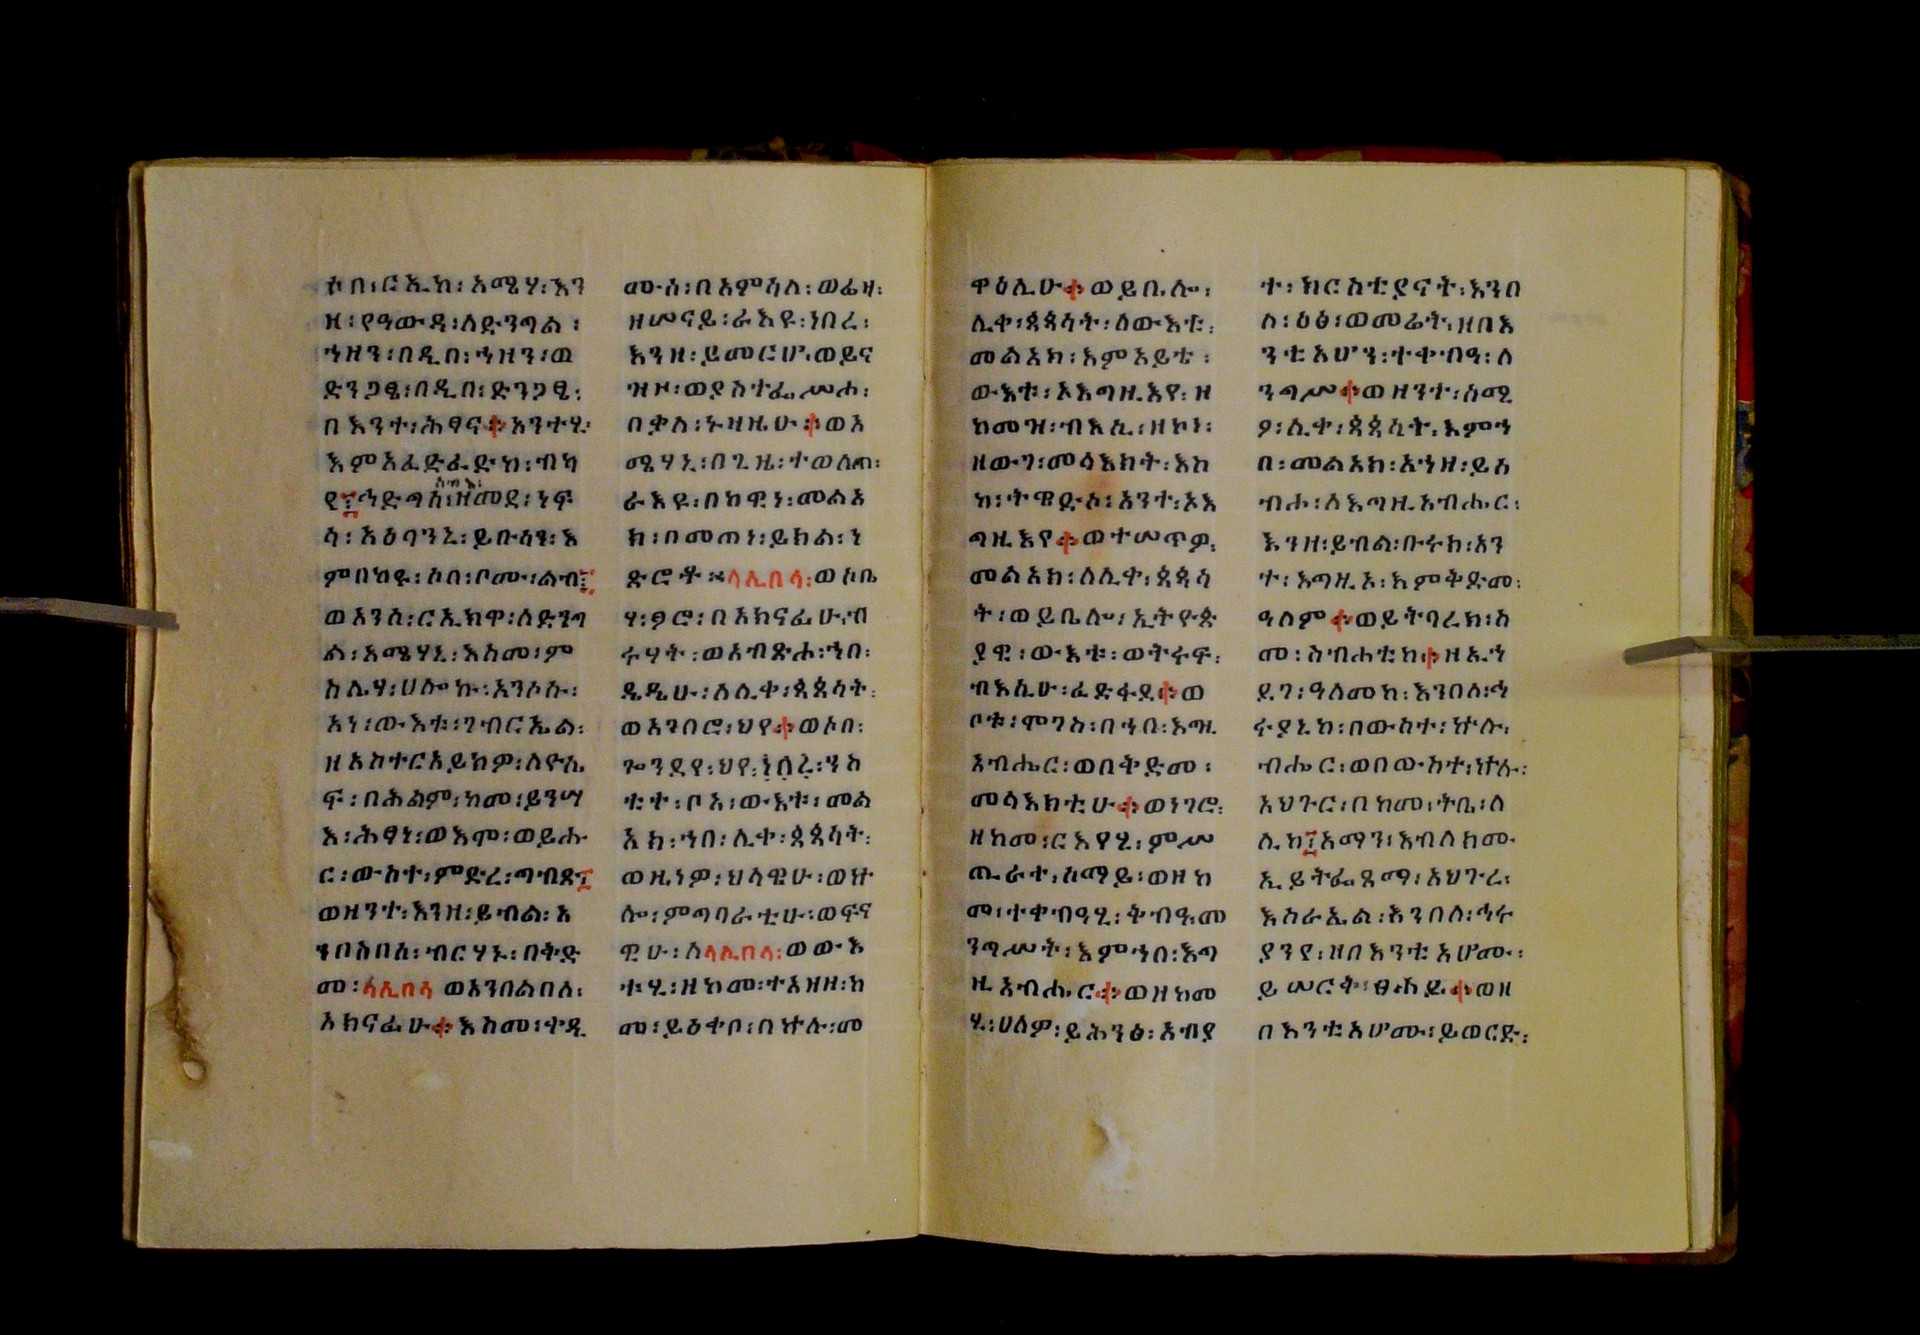 ቶ በ፡ ርኢክ፡ አሜሃ፡ እን
ዘ፡ የዓውዳ፡ ለድንግል፡
ኀዘን፡ በዲበ፡ ኀዘን፡ ወ
ድንጋፄ፡ በዲበ፡ ድንጋፄ፡
በእንተ፡ ሕፃና። አንተሂ፡
እምአፈድፈድከ፡ ብካ
ኅድጣ፡ ስጠእ፡ ዘመደ፡ ነፍ
ሳ፡ አዕባንኒ፡ ይቡሳን፡ እ
ምበከዩ፡ ሶበ፡ ቦሙ፡ ልብ፤
ወአንሰ፡ ርኢክዋ፡ ለድንግ
ል፡ አሜሃኒ፡ እስመ፡ ም
ስሌሃ፡ ሀሎኩ፡ አንሶሱ፡
አነ፡ ውእቱ፡ ገብርኤል፡
ዘአስተርአይክዎ፡ ለዮሴ
ፍ፡ በሕልም፡ ከመ፡ ይንሣ
እ፡ ሕፃነ፡ ወእሞ፡ ወይሑ
ር፡ ውስተ፡ ምድረ፡ ግብጽ፤
ወዘንተ፡ እንዘ፡ ይብል፡ አ
ንበስበሰ፡ ብርሃኑ፡ በቅድ
መ፡ ላሊበላ ወአንበልበለ፡
አክናፊሁ። እስመ፡ ተዲ
ሙስ፡ በአምሳለ፡ ወሬዛ፡
ዘሠናይ፡ ራእዩ፡ ነበረ፡
እንዘ፡ ይመርሆ፡ ወይና
ዝዞ፡ ወያስተፌሥሖ፡
በቃለ፡ ኑዛዜሁ። ወእ
ሜሃኒ፡ በጊዜ፡ ተወለጠ፡
ራእዩ፡ በከዊነ፡ መልአ
ክ፡ በመጠነ፡ ይክል፡ ነ
ጽሮቶ። ላሊበላ፡ ወሶቤ
ሃ፡ ፆሮ፡ በአክናፊሁ፡ ብ
ሩሃት፡ ወአብጽሖ፡ ኀበ፡
ዴዴሁ፡ ለሊቀ፡ ጳጳሳት፡
ወአንበሮ፡ ህየ። ወሶበ፡
ጐንደየ፡ ህየ፡ ነበረ፡ ኀስ
ቲተ፡ ቦአ፡ ውእቱ፡ መል
አክ፡ ኀበ፡ ሊቀ፡ ጳጳሳት፡
ወዜነዎ፡ ህላዌሁ፡ ወኵ
ሎ፡ ምግባራቲሁ፡ ወፍና
ዊሁ፡ ለላሊበላ፡ ወውእ
ቱሂ፡ ዘከመ፡ ተአዘዘ፡ ከ
መ፡ ይዕቀቦ፡ በኵሉ፡ መ
ዋዕሊሁ። ወይቤሎ፡
ሊቀ፡ ጳጳሳት፡ ለውእቱ፡
መልአክ፡ እምአይቴ፡
ውእቱ፡ ኦእግዚእየ፡ ዘ
ከመዝ፡ ብእሲ፡ ዘኮነ፡
ዘውገ፡ መላእክት፡ እስ
ከ፡ ትዌድሶ፡ አንተ፡ ኦእ
ግዚእየ። ወተሠጥዎ፡
መልአክ፡ ለሊቀ፡ ጳጳሳ
ት፡ ወይቤሎ፡ ኢትዮጵ
ያዊ፡ ውእቱ፡ ወትሩፍ፡
ብእሲሁ፡ ፈድፋደ። ወ
ቦቱ፡ ሞገሰ፡ በኀበ፡ እግዚ
አብሔር፡ ወበቅድመ፡
መላእክቲሁ። ወነገሮ፡
ዘከመ፡ ርእየሂ፡ ምሥ
ጢራተ፡ ሰማይ፡ ወዘከ
መ፡ ተቀብዓሂ፡ ቅብዓ፡ መ
ንግሥት፡ እምኀበ፡ እግ
ዚአብሔር። ወዘከመ
ሂ፡ ሀለዎ፡ ይሕንፅ፡ አብያ
ተ፡ ክርስቲያናት፡ እንበ
ለ፡ ዕፅ፡ ወመሬት፡ ዘበእ
ንቲአሆን፡ ተቀብዓ፡ ለ
ንግሥ። ወዘንተ፡ ሰሚ
ዖ፡ ሊቀ፡ ጳጳሳት፡ እምኀ
በ፡ መልአክ፡ አኀዘ፡ ይሴ
ብሖ፡ ለእግዚአብሔር፡
እንዘ፡ ይብል፡ ቡሩክ፡ አን
ተ፡ እግዚኦ፡ እምቅድመ፡
ዓለም። ወይትባረክ፡ ስ
መ፡ ስብሐቲከ። ዘኢኀ
ደገ፡ ዓለመከ፡ እንበለ፡ ኅ
ሩያኒከ፡ በውስተ፡ ኵሉ፡
ብሔር፡ ወበውስተ፡ ኵሉ፡
አህጉር፡ በከመ፡ ትቤ፡ ለ
ሊከ፤ አማን፡ እብለከሙ
ኢይትፌጸማ፡ አህጉረ፡
እስራኤል፡ እንበለ፡ ኅሩ
ያንየ፡ ዘበእንቲአሆሙ፡
ይሠርቅ፡ ፀሐይ። ወዘ
በእንቲአሆሙ፡ ይወርድ፡